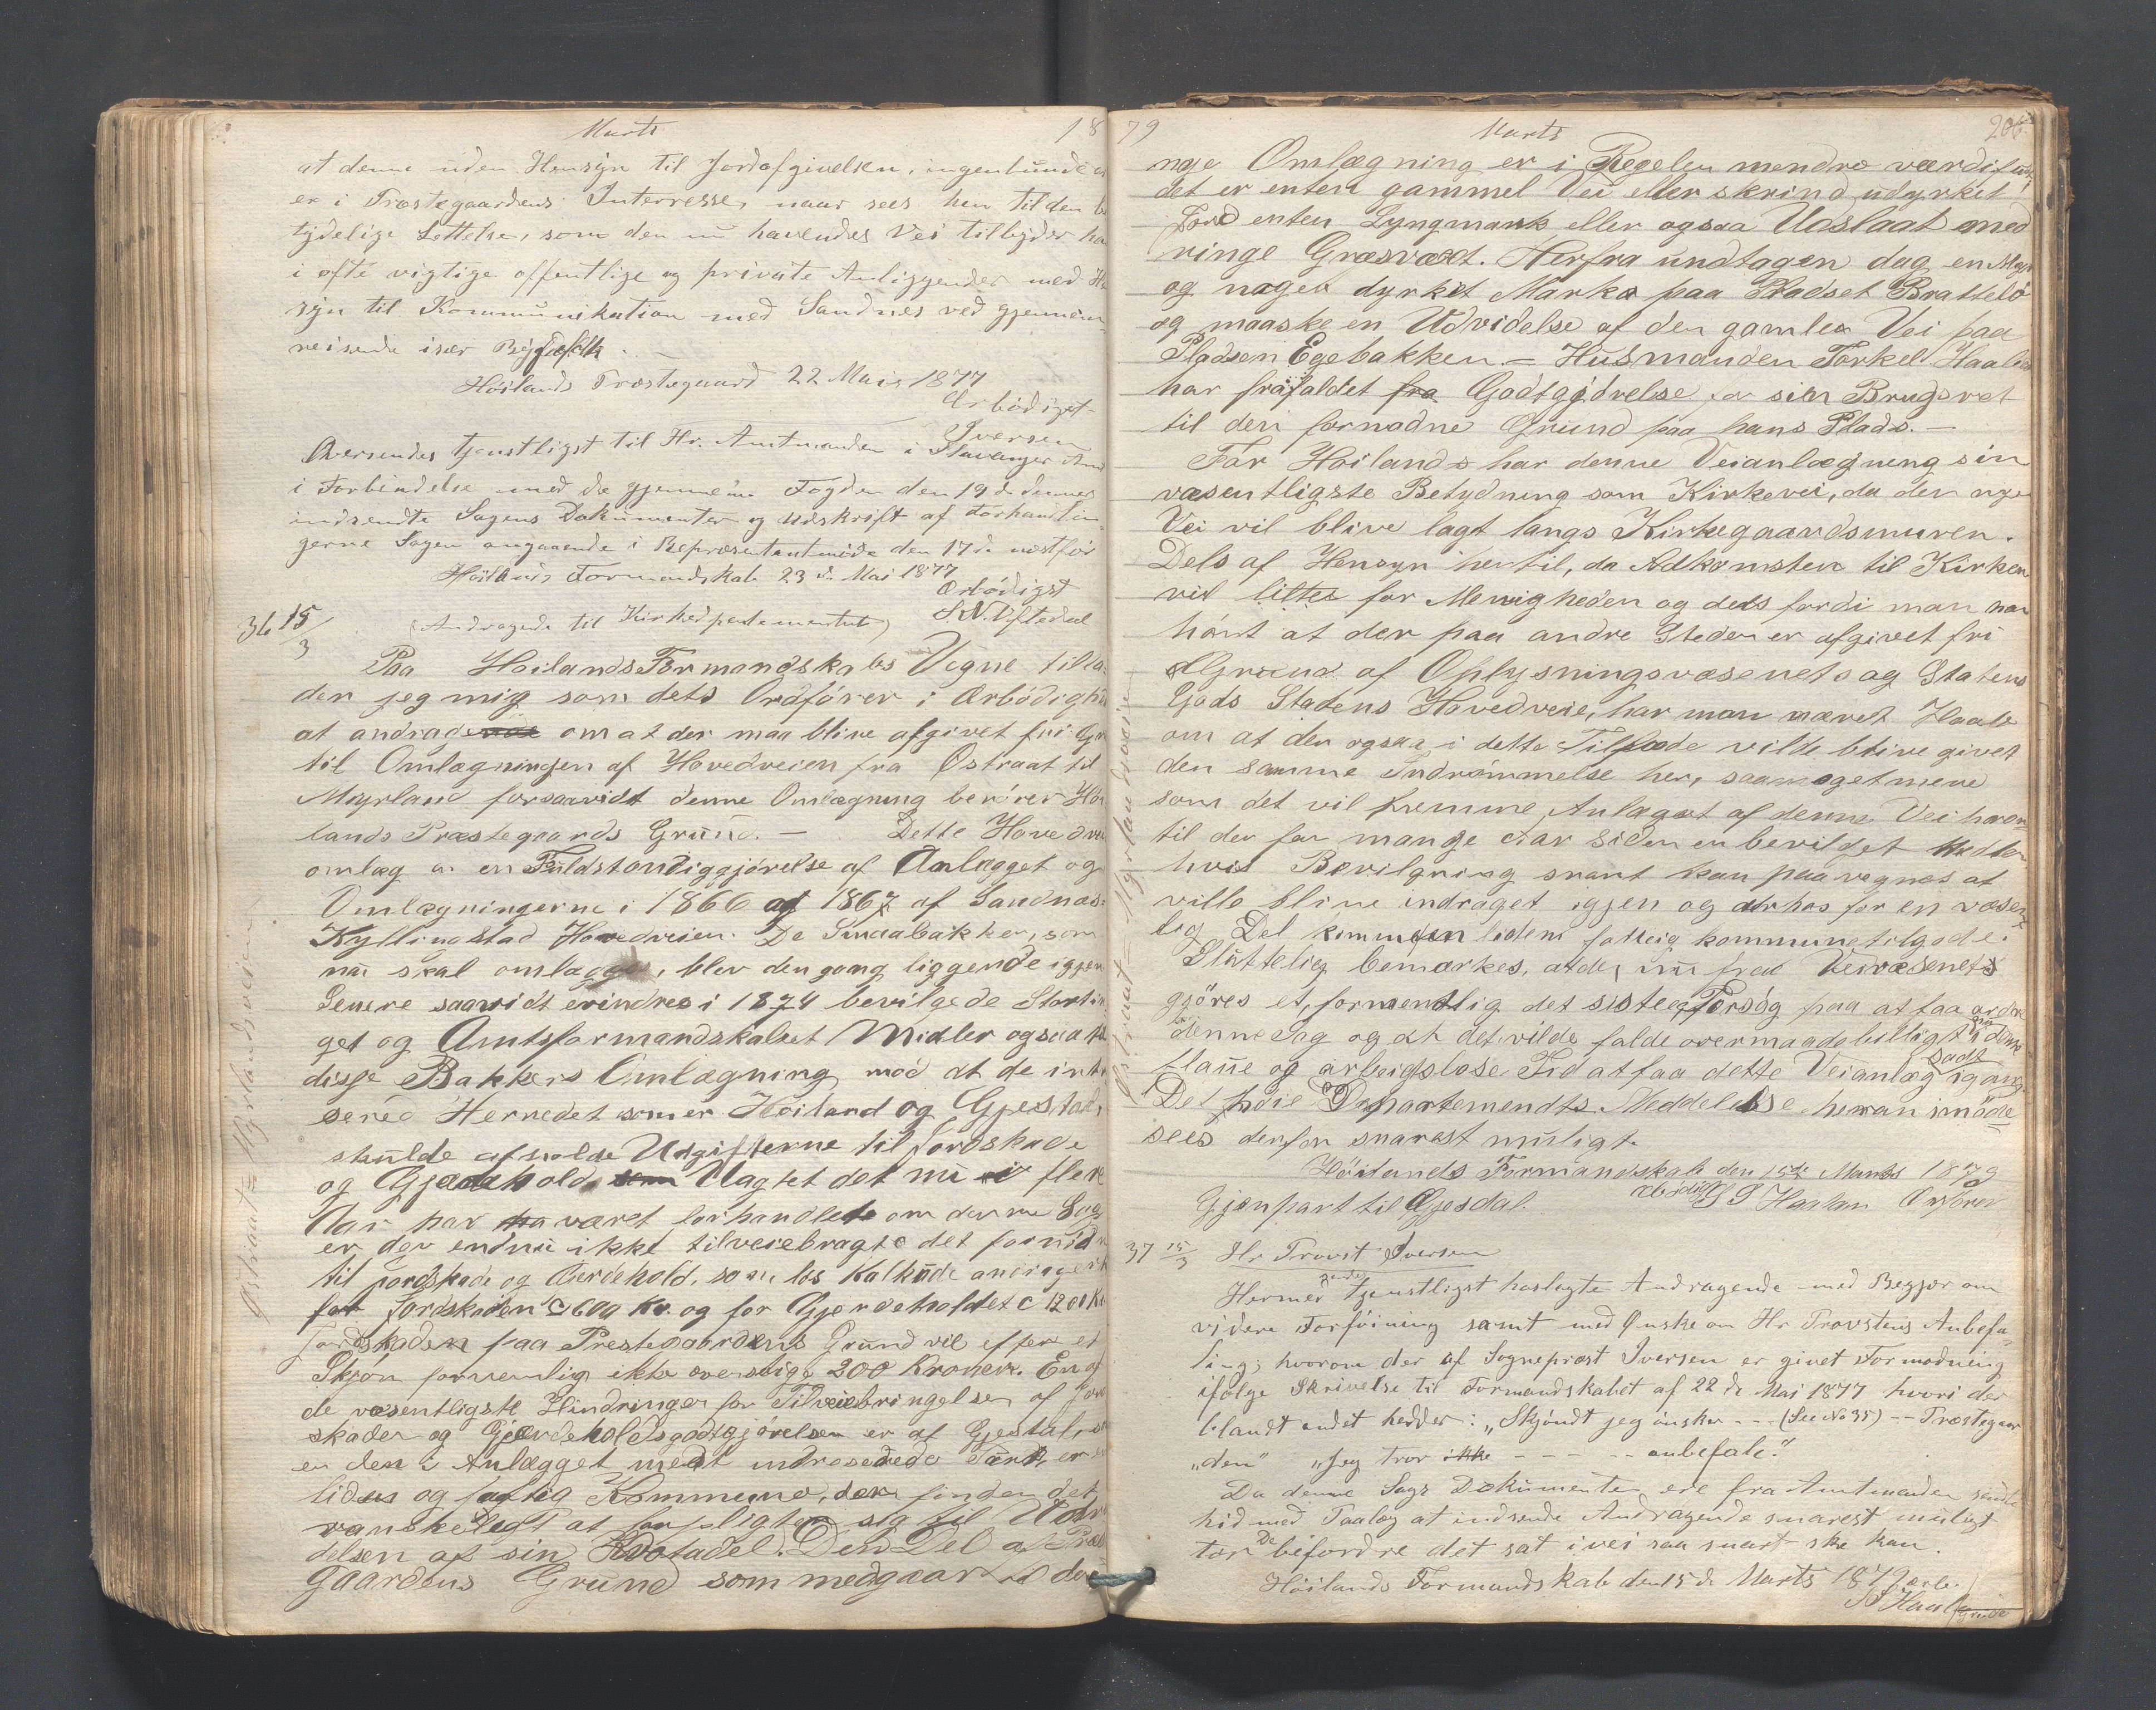 Marts 18
at denne uden Hensyn til Jordafgivelsen, ingenlunde
er i Præstegaardens Interresse, naar sees hen til den be
tydelige Lettelse, som den nu havendes Vei tilbyder
i ofte vigtige offentlige og private Anliggender med
syn til Kommunikation med Sandnes ved gjennem-
reisende især
Höilands Præstegaard 22 Mai 1877
Ærbödigst
Iversen
Oversendes tjenstligst til Hr. Amtmanden i Stavanger Amt
i Forbindelse med de gjennem Fogden den 19de dennes
indsendte Sagens Dokumenter og Udskrift af Forhandlin-
gerne Sagen angaaende i Repræsentantmöde den 17de næstför
Höilands Formandskab 23de Mai 1877
Ærbödigst
S.N. Oftedal
36 15/3
(Andragende til Kirkedepartementet)
Paa Höilands Formandskabs Vegne tilla-
der jeg mig som dets Ordförer i Ærbödighed
at andrage om at der maa blive afgivet fri
til Omlægningen af Hovedveien fra Østraat til
Myrland forsaavidt denne Omlægning berörer Höi
lands Præstegaards Grund. — Dette Hovedvei
omlæg er en Fuldstændiggjörelse af Anlægget og
Omlægningerne i 1866 og 1867 af Sandnæs-
Kyllingstad Hovedveien. De Smaabakker, som
nu skal omlægges, blev den gang liggende igjen
Senere saavidt erindres i 1874 bevilgede Storthin
get og Amtsformandskabet Midler ogsaa til
disse Bakkers Omlægning mod at de inte
serede Herredet som er Höiland og Gjesdal,
skulde afholde Udgifterne til Jordskade
og Gjærdehold Uagtet det nu i flere
Aar har været forhandlet om denne Sag
er der endnu ikke tilveiebragt det fornödne
til Jordskade og Gjærdehold, som los Kalkude andrager
for Jordskaden c 600 Kr. og for Gjerdeholdet c 1200 Kr
Jordskaden paa Prestegaardens Grund vil efter et
Skjön formentlig ikke overstige 200 Kroner. En af
de væsentligste Hindringer for Tilveiebringelsen af Jord
skaden og Gjærdeholdsgodtgjörelsen er at Gjesdal, som
er den i Anlægget mest interesserede Part, er en
liden og fattig Kommune, der finder det
vanskeligt at forpligte sig til Udre
delsen af sin Kvotadel. Den Del af Præste
gaardens Grund som medgaar til den
Østraat = Myrlandsveien
79 Marts 206
nye Omlægning er i Regelen mendre værdifuld,
det er enten gammel Vei eller skrind udyrket
Jord enten Lyngmark eller ogsaa Udslaat med
ringe Græsvæxt. Herfra undtagen dog en Myr
og noget dyrket Mark paa Pladset Bratteli
og maaske en Udvidelse af den gamle Vei paa
Pladsen Egebakken — Husmanden Torkel Haaland
har frafaldet fra Godtgjörelse for sin Brugsret
til den fornödne Grund paa hans Plads. —
For Höilands har denne Veianlægning sin
væsentligste Betydning som Kirkevei, da den nye
Vei vil blive lagt langs Kirkegaardsmuren.
Dels af Hensyn hertil, da Adkomsten til Kirken
vil lettes for Menigheden og dels fordi man har
hört at der paa andre Steder er afgivet fri
Grund af Oplysningsvæsenets og Statens
Gods Statens Hovedveie, har man næret Haab
om at der ogsaa i dette Tilfælde vilde blive givet
den samme Indrömmelse her, saa meget mere
som det vil fremme Anlægget af denne Vei hvor-
til der for mange Aar siden er bevilget Midler
hvis Bevilgning snart kan paaregnes at
ville blive indraget igjen og derhos for en væsent-
lig Del kommer en liden fattig kommune tilgode.
Sluttelig bemærkes, at der nu fra Veivæsenets
gjöres et, formentlig det sidste Forsög paa at faa orden
i denne Sag og at det vilde falde overmaade billigt i denne
flaue og arbeidslöse Tid at faa dette Veianlæg sadt igang
Det höie Departements Meddelelse heran imöde
sees derfor snarest muligt.
Höilands Formandskab den 15de Marts 1879
ærbödigst Haaland Ordförer
Gjenpart til Gjesdal.
Østraat — Myrlandsveien
37 15/3 Hr Provst Iversen
Hermed sendes tjenstligst hoslagte Andragende med Begjær om
videre Forföining samt med Ønske om Hr Provstens Anbefa-
ling, hvorom der af Sogneprest Iversen er givet Formodning
ifölge Skrivelse til Formandskabet af 22de Mai 1877 hvori der
blandt andet hedder: „Skjöndt jeg önsker - - - (See No 35) - - Præstegaar
„den" „Jeg tror ikke - - - - anbefale."
Da denne Sags Dokumenter ere fra Amtmanden sendt
hid med Paalæg at indsende Andragende snarest muligt
tör De befordre det sat i vei saa snart ske kan.
Höilands Formandskab den 15de Marts 1879 ærb.
Haaland